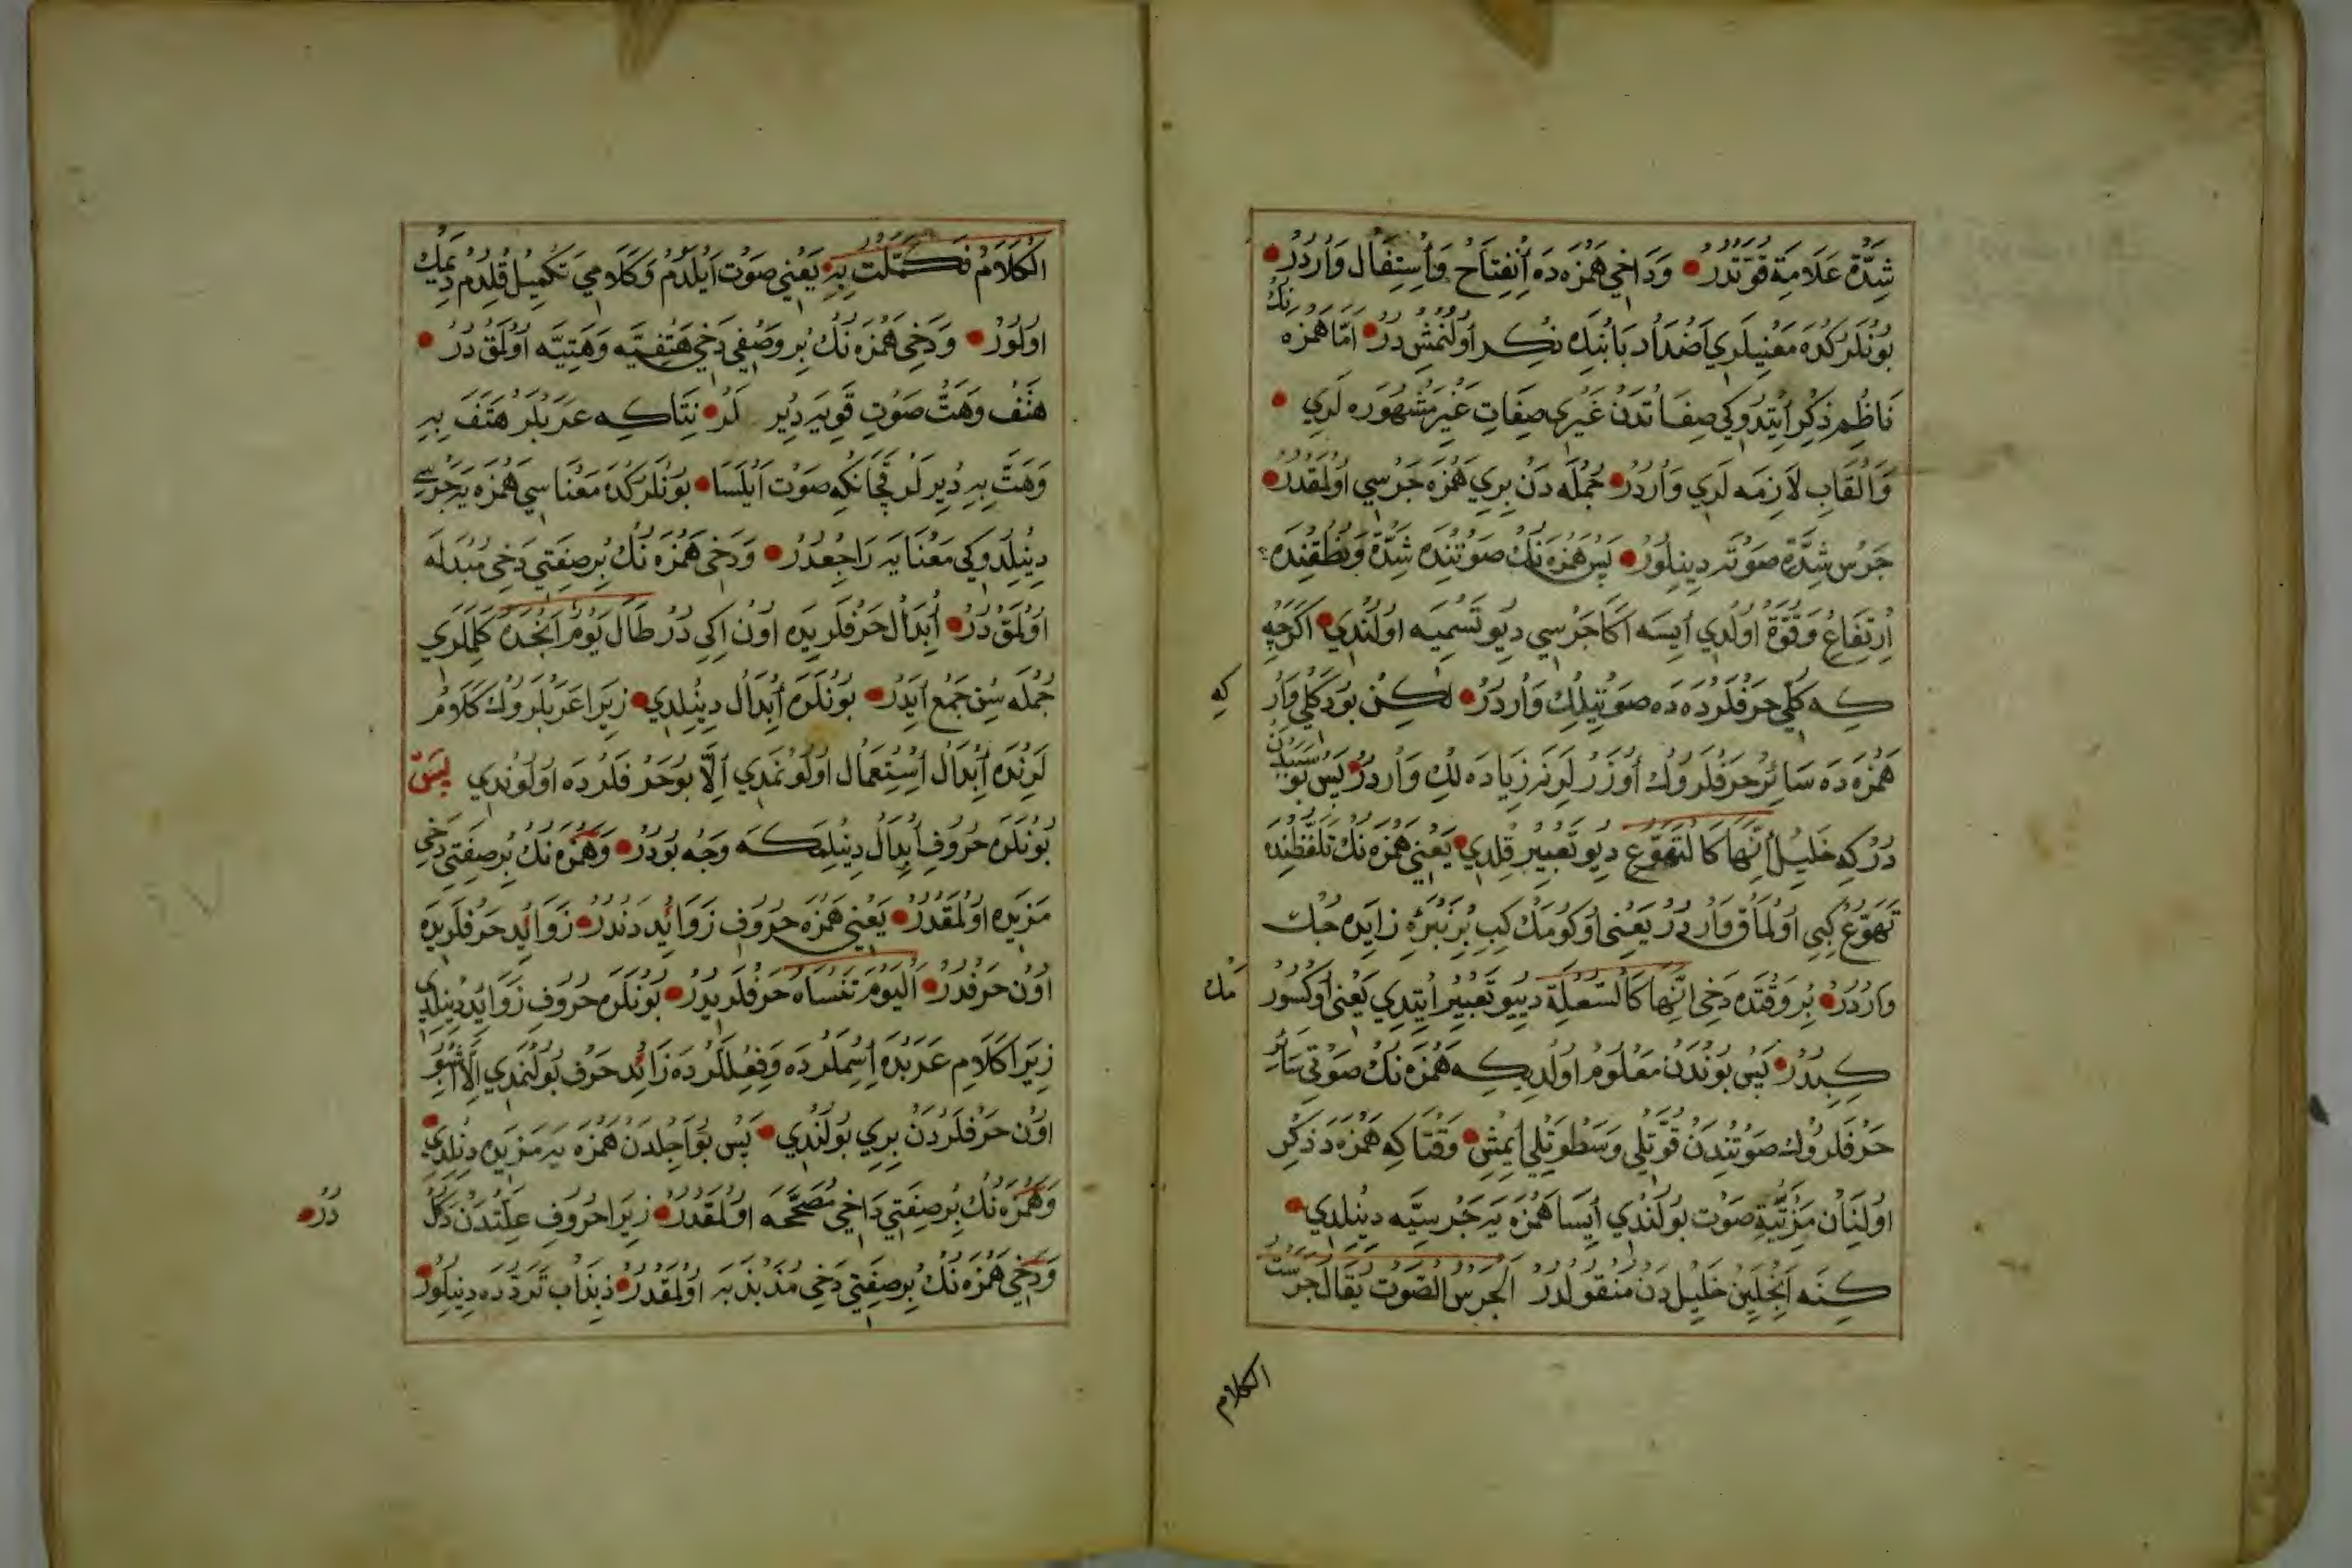 شِدَّة عَلَامَةِ قُوَّتْدُرْ وَدَاخِي هَمْزَه دَه اِنْفِتَاحْ وَاسْتِفَال وَارْدُرْ
بُونْلَرْكْدَه مَعْنِيلَرِي اَضْدَاد بَابِنْدَه ذِكِر اُولُنْمِشْ دُرْ اَمَّا هَمْزَه نِكْ
نَاظِمِ ذِكِر اِيْتِدُوكِي صِفَاتْدَنْ غَيْرِي صِفَاتِ غَيْرِ مَشْهُورَه لَرِي
وَاَلْقَابِ لَازِمَه لَرِي وَارْدُرْ جُمْلَه دَنْ بِرِي هَمْزَه جَرْسِي اُولْمَقْدُرْ
جَرْس شِدَّةِ صَوْتَه دِينِلُورْ پَسْ هَمْزَه نِكْ صَوْتِنْدَه شِدَّة وَنُطْقِنْدَه
اِرْتِفَاعْ وَقُوَّة اُولْدِي اِيسَه اَكَا جَرْسِي دِيُو تَسْمِيَه اُولُنْدِي اَكَرْچِه
كِه كُلِّي حَرْفلَرْدَه دَه صَوْتِيلِكْ وَارْدُرْ لٰكِنْ بُو دَكْلِي وَارْ كِه
هَمْزَه دَه سَائِرْ حَرْفلَرُوكْ اُوزَرْلَرِنَه زِيَادَه لِكْ وَارْدُرْ پَسْ بُو سَبَبْدَنْ
دُرْ كِه خَلِيلْ اِنَّهَا كَالتَّهَوُّعْ دِيُو تَعْبِيرْ قِلْدِي يَعْنِي هَمْزَه نِكْ تَلَفُّظِنْدَه
تَهَوُّعْ كِبِي اُولْمَاقْ وَارْدُرْ يَعْنِي اُوكُومَكْ كِبِ بِرْ نَبْرَه زَايِدَه چَكْمَكْ
وَارْدُرْ بِرْ وَقْتِدَه دَخِي اِنَّهَا كَالسَّعْلَةِ دِييُو تَعْبِيرْ اِيتْدِي يَعْنِي اُوكْسُورُرْ
كِبِدُرْ پَسْ بُونْدَنْ مَعْلُومْ اُولْدِي كِه هَمْزَه نِكْ صَوْتِي سَائِرْ
حَرْفلَرُوكْ صَوْتِنْدَنْ قُوَّتْلِي وَسَطْوَتْلِي اِيمِشْ وَقْتَاكِه هَمْزَه دَه ذِكِرْ
اُولِنَانْ مَزِيَّةِ صَوْت بُولُنْدِي اِيسَا هَمْزَه يَه جَرْسِيَّه دِينِلْدِي
كِنَه اَنْجِلَيِنْ خَلِيلْ دَنْ مَنْقُولْدُرْ الْجَرْسُ الصَّوْتُ يُقَالُ جَرَسْتُ
الكلام
الْكَلَامَ فَكَمَّلْتُ بِهِ يَعْنِي صَوْت اَيْلَدُمْ وَكَلَامِي تَكْمِيلْ قِلْدُمْ دِيمَكْ
اُولُورْ وَدَخِي هَمْزَه نِكْ بِرْ وَصْفِي دَخِي هَتْفِيَّه وَهَتِيَّه اُولْمَقْ دُرْ
هَتْف وَهَتّ صَوْتِ قَوِيَه دِيرْ لَرْ نِتَاكِه عَرَبْلَرْ هَتَفَ بِهِ
وَهَتَّ بِهِ دِيرْلَرْ قَچَانكِه صَوْت اَيْلَسَا بُونْلَرْكْدَه مَعْنَاسِي هَمْزَه يَه جَرْسِي
دِينِلْدُوكِي مَعْنَايَه رَاجِعْدُرْ وَدَخِي هَمْزَه نِكْ بِرْ صِفَتِي دَخِي مُبْدَلَه
اُولْمَقْ دُرْ اِبْدَال حَرْفلَرِيدَه اُونْ اِكِي دُرْ طَالَ يَوْمَ اَنْجَدْتُه كَلِمَلَرِي
جُمْلَه سِنْ جَمْع اَيْدَرْ بُونْلَرَه اِبْدَال دِينِلْدِي زِيرَا عَرَبْلَرُوكْ كَلَامْ
لَرِنْدَه اِبْدَال اِسْتِعْمَال اُولُونْمَدِي اِلَّا بُو حَرْفلَرْدَه اُولُونْدِي پَسْ
بُونْلَرَه حُرُوفِ اِبْدَال دِينِلْمَكَه وَجْه بُودُرْ وَهَمْزَه نِكْ بِرْ صِفَتِي دَخِي
مَزِيدَه اُولْمَقْدُرْ يَعْنِي هَمْزَه حُرُوفِ زَوَائِدْ دَنْدُرْ زَوَائِد حَرْفلَرِيدَه
اُونْ حَرْفدُرْ اَلْيَوْمَ تَنْسَاه حَرْفلَرِيدُرْ بُونْلَرَه حُرُوفِ زَوَائِد دِينِلْدِي
زِيرَا كَلَامِ عَرَبْدَه اِسِمْلَرْدَه وَفِعِلْلَرْدَه زَائِد حَرْف بُولُنْمَدِي اِلَّا اُشْبُو
اُونْ حَرْفلَرْدَنْ بِرِي بُولُنْدِي پَسْ بُو اَجِلْدَنْ هَمْزَه يَه مَزِيدَه دِينِلْدِي
وَهَمْزَه نِكْ بِرْ صِفَتِي دَاخِي مُصَحَّحَه اُولْمَقْدُرْ زِيرَا حُرُوفِ عِلَّتْدَنْ دَكُلْ دُرْ
وَدَخِي هَمْزَه نِكْ بِرْ صِفَتِي دَخِي مُذَبْذَبَه اُولْمَقْدُرْ ذِبْذَاب تَرَدُّدَه دِينِلُورْ